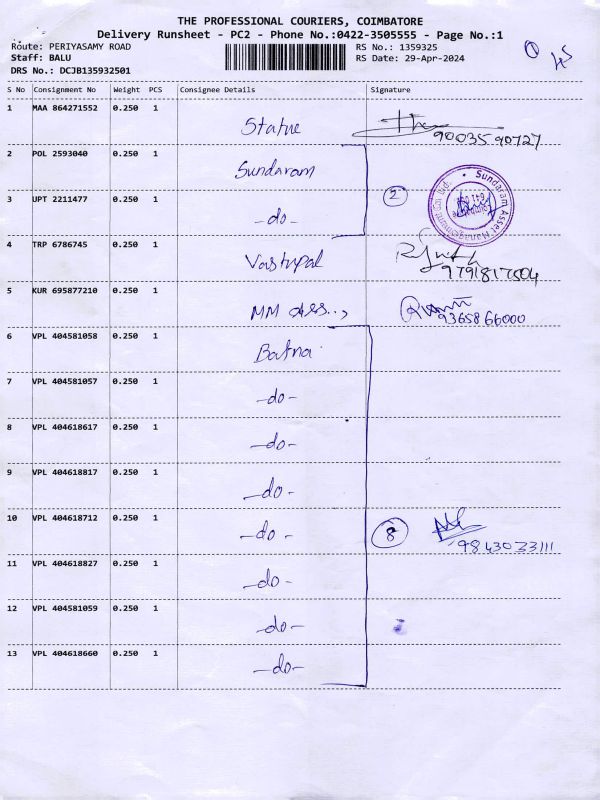 THE PROFESSIONAL COURIERS, COIMBATORE
Delivery Runsheet - PC2 - Phone No.:0422-3505555 - Page No.:1
Route: PERIYASAMY ROAD RS No.: 1359325
Staff: BALU RS Date: 29-Apr-2024
DRS No.: DCJB135932501
S No Consignment No Weight PCS Consignee Details Signature
1 MAA 864271552 0.250 1 Statue
9003590727
2 POL 2593040 0.250 1 Sundaram
2
Sundaram Asset Management
3 UPT 2211477 0.250 1 -do-
4 TRP 6786745 0.250 1 Vastupal
9791817504
5 KUR 695877210 0.250 1 MM
9365866000
6 VPL 404581058 0.250 1
7 VPL 404581057 0.250 1 -do-
8 VPL 404618617 0.250 1 -do-
9 VPL 404618817 0.250 1 -do-
10 VPL 404618712 0.250 1 -do- 8
9843033111
11 VPL 404618827 0.250 1 -do-
12 VPL 404581059 0.250 1 -do-
13 VPL 404618660 0.250 1 -do-